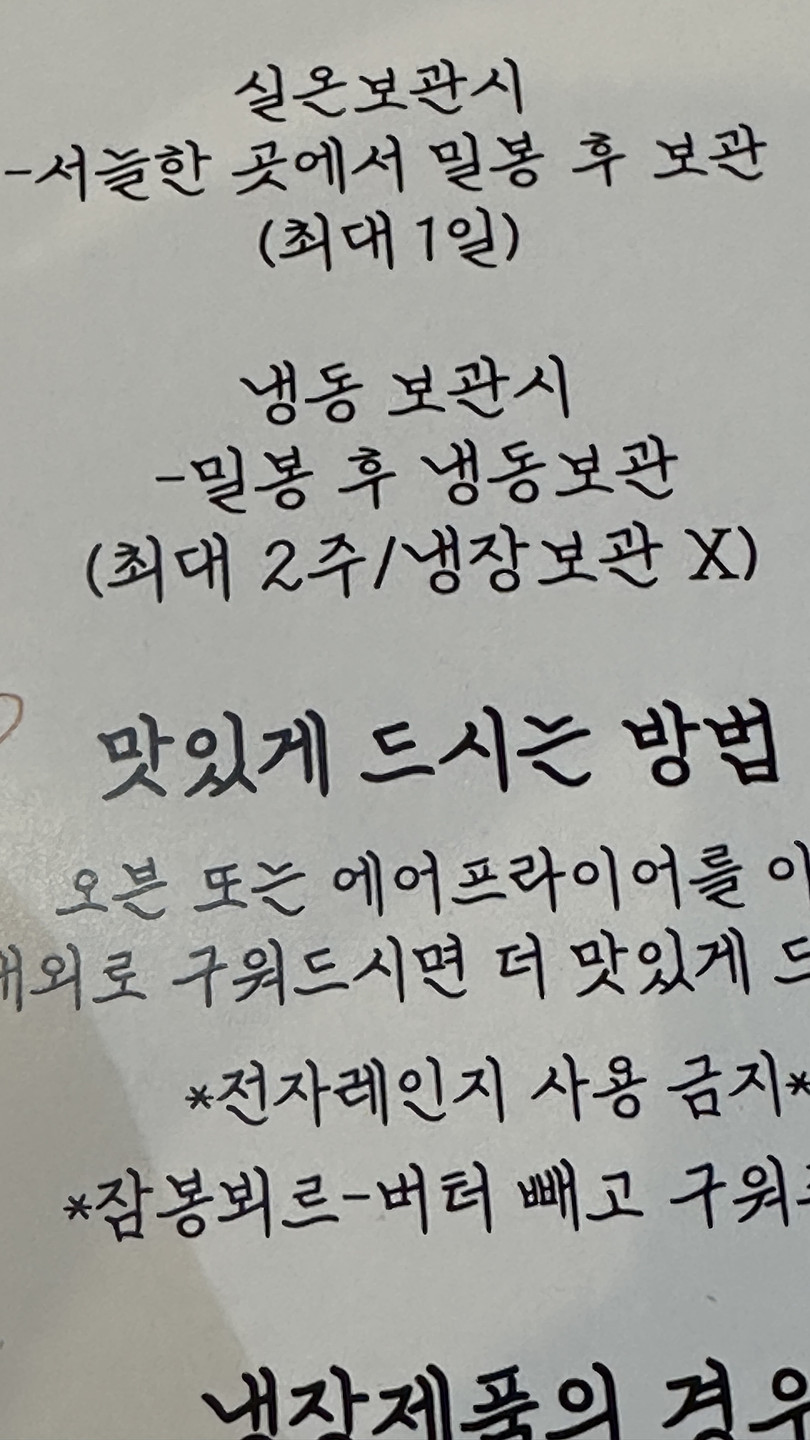 실온보관시
-서늘한 곳에서 밀봉 후 보관
(최대 1일)
냉동 보관시
-밀봉 후 냉동보관
(최대 2주/냉장보관 X)
맛있게 드시는 방법
오븐 또는 에어프라이어를
구워드시면 더 맛있게
*전자레인지 사용 금지*
*잠봉뵈르-버터 빼고
냉장제품의